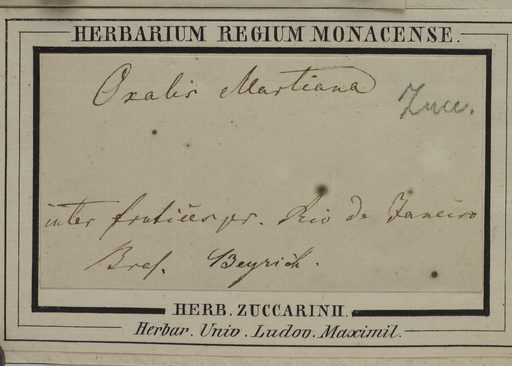 HERBARIUM REGIUM MONACENSE.
Oxalis Martiana
Zucc.
inter frutices pr. Rio de Janeiro
Bras. Beyrich.
HERB. ZUCCARINII.
Herbar. Univ. Ludov. Maximil.